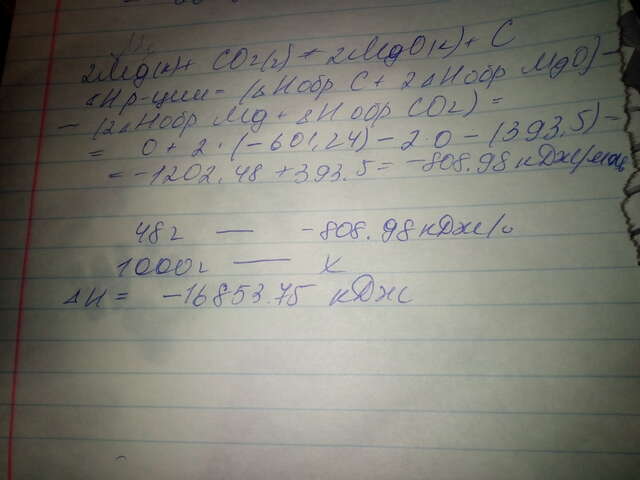 2Mg(к)+ CO2(г) = 2MgO(к)+ C
ΔHр-ции= (ΔHобр C + 2ΔHобр MgO)-
- (2ΔHобр Mg + ΔHобр CO2) =
= 0 + 2·(-601,24) - 2·0 - (393,5) -
= -1202,48 + 393,5 = -808.98 кДж/моль
48г — -808.98 кДж/
1000г — X
ΔH = -16853.75 кДж